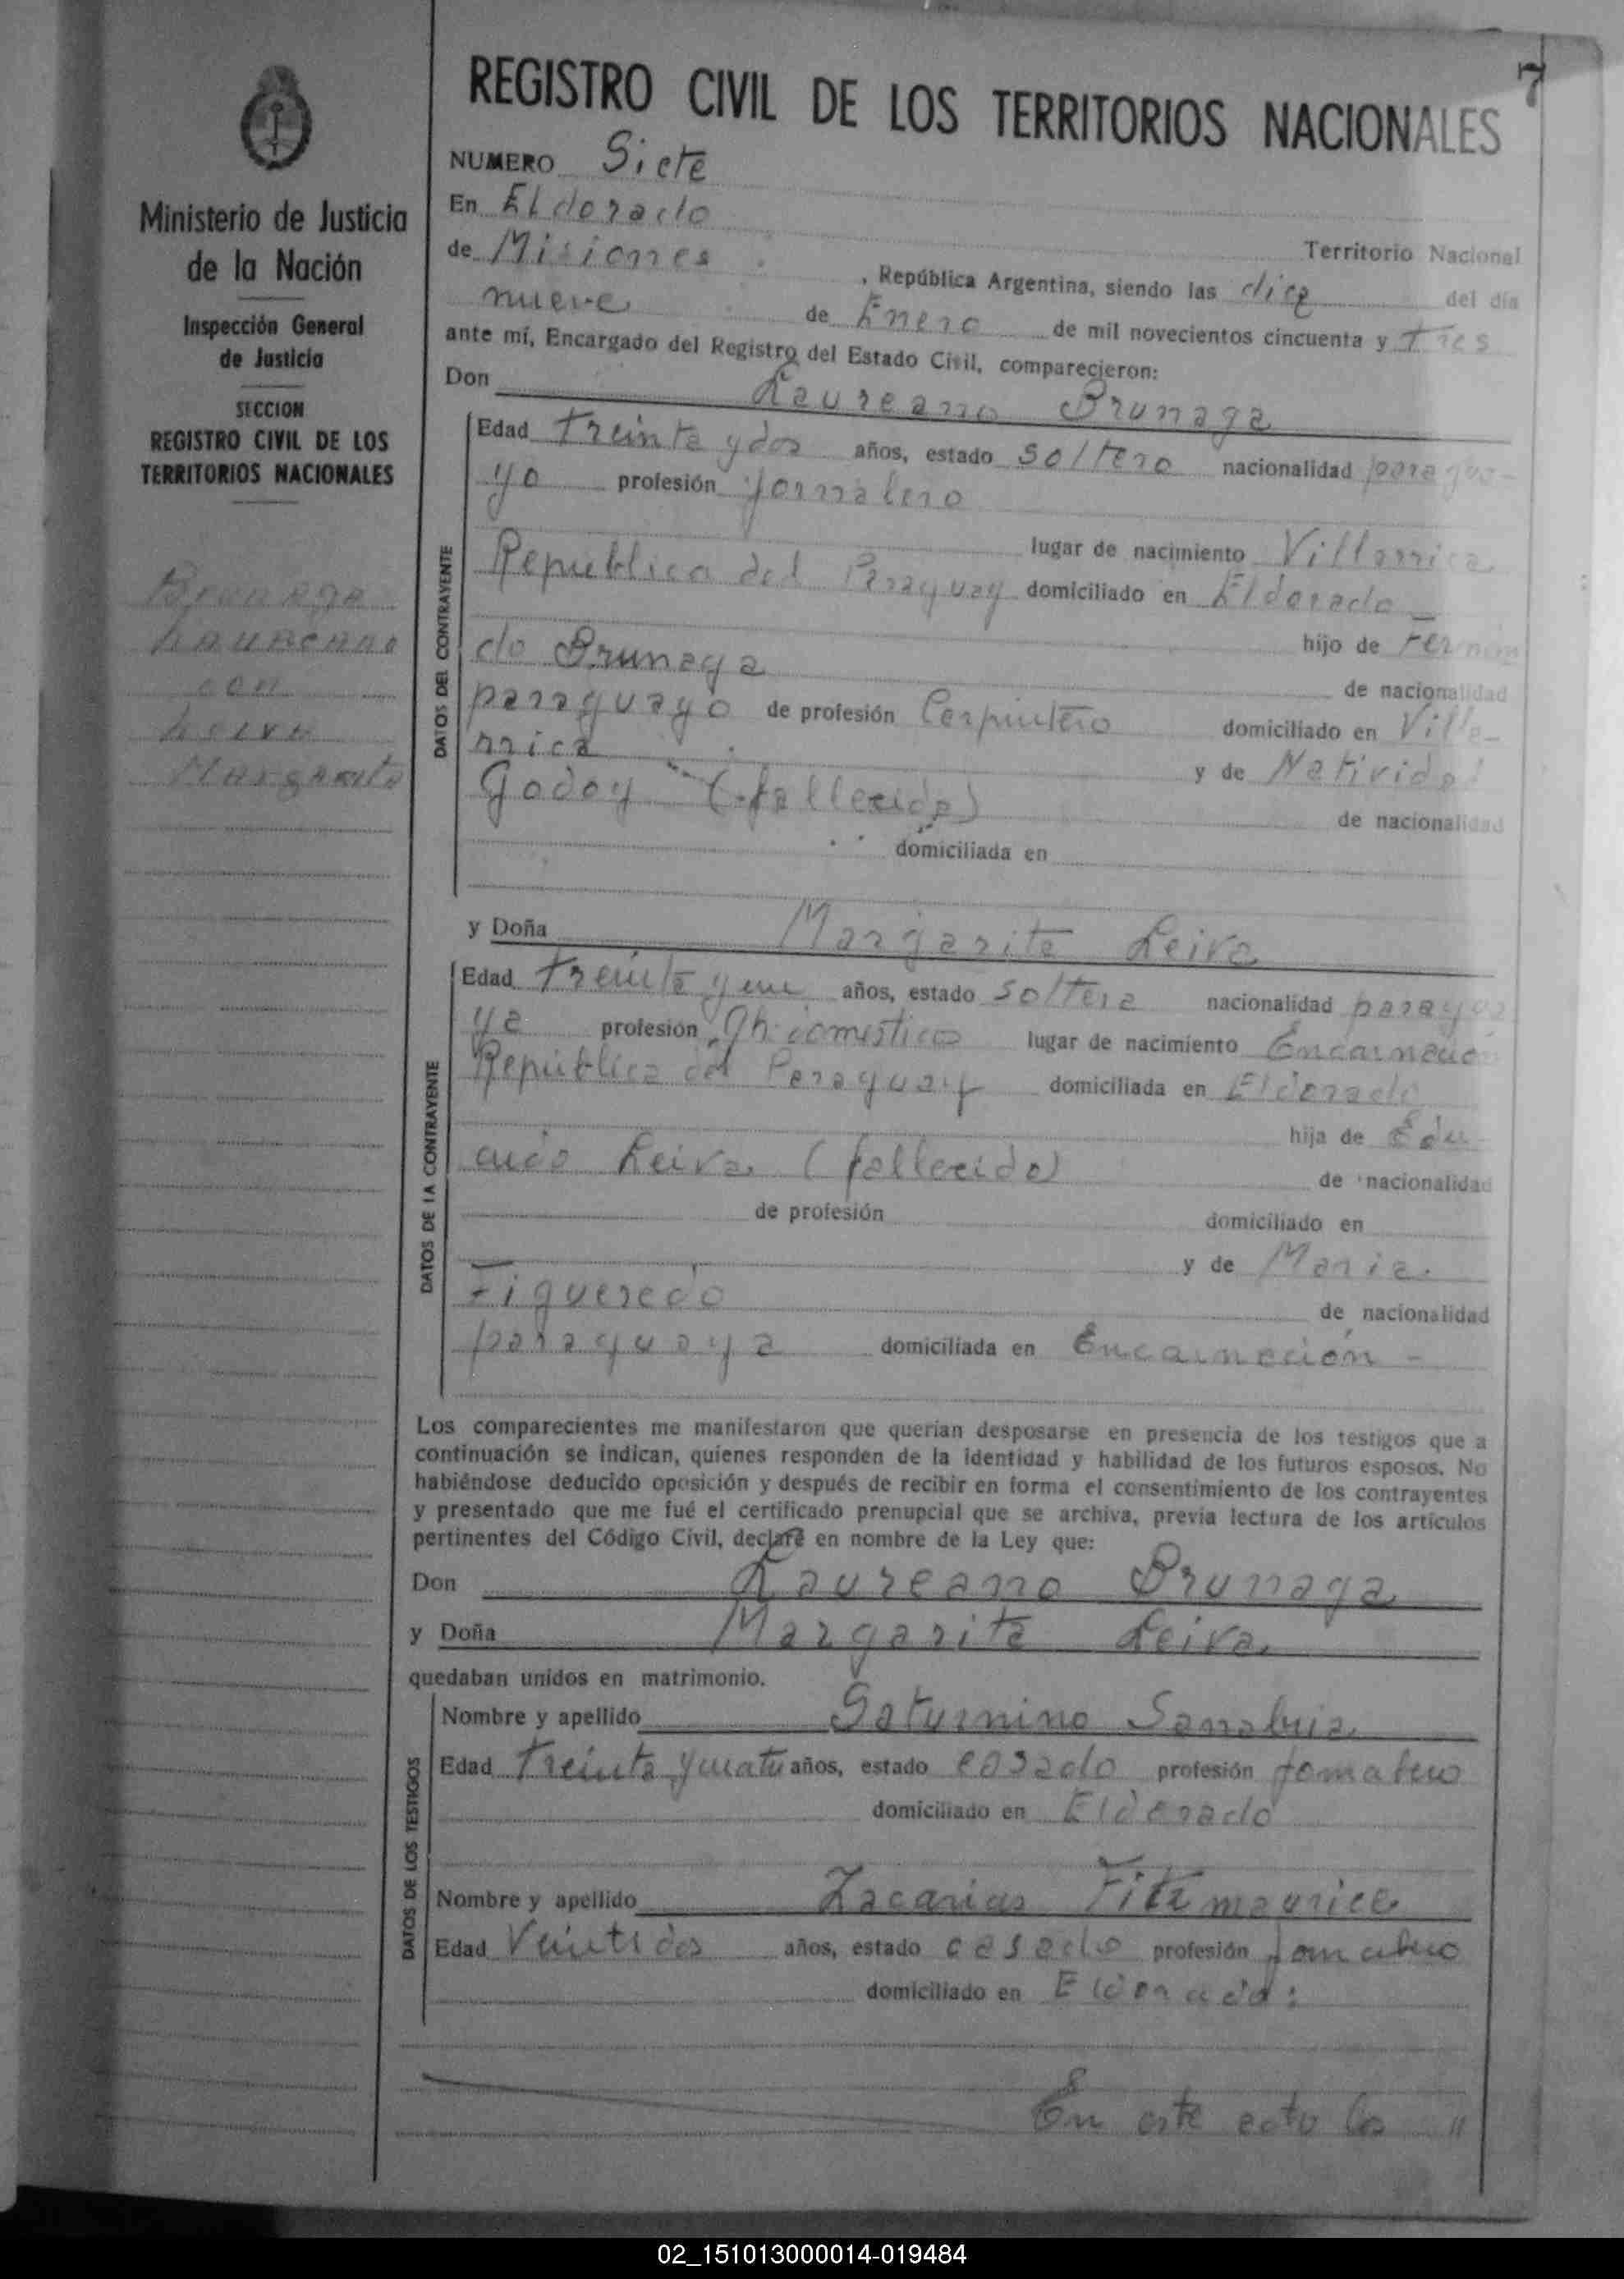 7
REGISTRO CIVIL DE LOS TERRITORIOS NACIONALES
Ministerio de Justicia
de la Nación
Inspección General
de Justicia
SECCION
REGISTRO CIVIL DE LOS
TERRITORIOS NACIONALES
Brunaga
Laureano
con
Leiva
Margarita
NUMERO Siete
En Eldorado Territorio Nacional
de Misiones, República Argentina, siendo las diez del día
nueve de Enero de mil novecientos cincuenta y Tres
ante mí, Encargado del Registro del Estado Civil, comparecieron:
Don Laureano Brunaga
DATOS DEL CONTRAYENTE
Edad Treinta y dos años, estado soltero nacionalidad paragua-
yo profesión jornalero
lugar de nacimiento Villarrica
Republica del Paraguay domiciliado en Eldorado
hijo de Fernan
do Brunaga de nacionalidad
paraguayo de profesión Carpintero domiciliado en Villa-
rrica y de Natividad
Godoy (fallecida) de nacionalidad
domiciliada en
y Doña Margarita Leiva
DATOS DE LA CONTRAYENTE
Edad Treinta y un años, estado soltera nacionalidad paragua
ya profesión domestico lugar de nacimiento Encarnación
República del Paraguay domiciliada en Eldorado
hija de
Leiva (fallecido) de nacionalidad
de profesión domiciliado en
y de Maria
Figueredo de nacionalidad
paraguaya domiciliada en Encarnación -
Los comparecientes me manifestaron que querían desposarse en presencia de los testigos que a
continuación se indican, quienes responden de la identidad y habilidad de los futuros esposos. No
habiéndose deducido oposición y después de recibir en forma el consentimiento de los contrayentes
y presentado que me fué el certificado prenupcial que se archiva, previa lectura de los artículos
pertinentes del Código Civil, declaré en nombre de la Ley que:
Don Laureano Brunaga
y Doña Margarita Leiva
quedaban unidos en matrimonio.
DATOS DE LOS TESTIGOS
Nombre y apellido Saturnino Sanabria
Edad Treinta y cuatro años, estado casado profesión jornalero
domiciliado en Eldorado
Nombre y apellido Zacarias Fitzmaurice
Edad Veintidos años, estado casado profesión jornalero
domiciliado en Eldorado:
En este acto los "
02_151013000014-019484